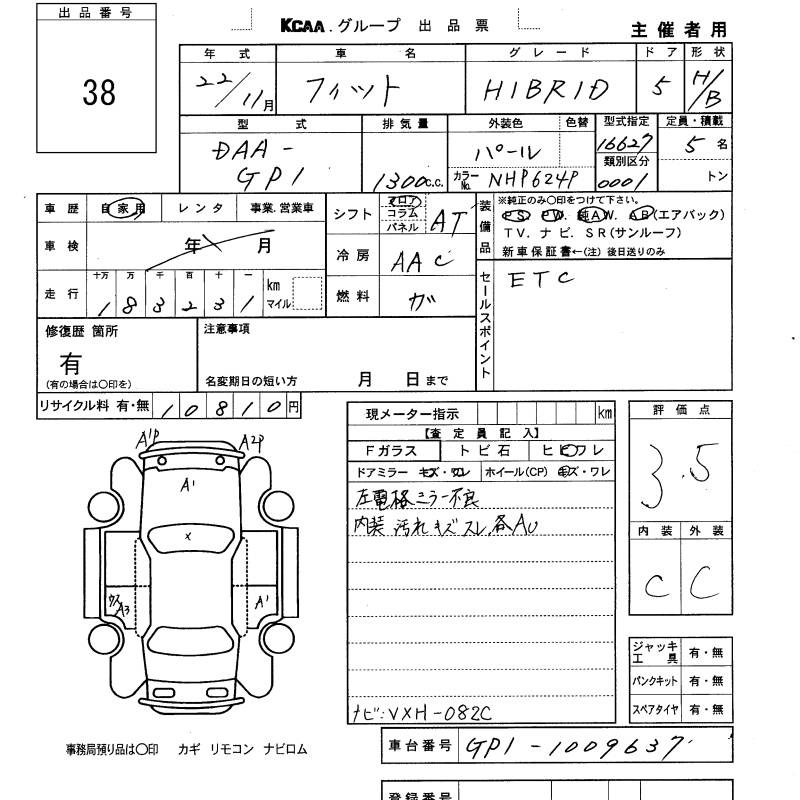 出品番号
38
KCAA.グループ 出品票
主催者用
年式 車名 グレード ドア 形状
22/11月 フィット HIBRID 5 H/B
型式 排気量 外装色 色替 型式指定 定員・積載
DAA-GP1 1300c.c. パール 16627 5名
カラーNo. NHP624P 類別区分 0001 トン
車歴 自家用 レンタ 事業.営業車
シフト フロア コラム パネル AT
装備品
※純正のみ〇印をつけて下さい。
PS. PW. 純AW. AB(エアバック)
TV. ナビ. SR(サンルーフ)
新車保証書←(注)後日送りのみ
車検 年 月
冷房 AAC
走行 十万 万 千 百 十 一 km マイル
183231
燃料 ガ
セールスポイント
ETC
修復歴 箇所
有
(有の場合は〇印を)
注意事項
名変期日の短い方 月 日まで
リサイクル料 有・無 10810円
現メーター指示 km
【査定員記入】
Fガラス トビ石 ヒビワレ
ドアミラー キズ・ワレ ホイール(CP) キズ・ワレ
左電格ミラー不良
内装汚れキズスレ,各AU
ナビ:VXH-082C
評価点
3.5
内装 外装
C C
A1P A2P
A1
X
A3
A1
ジャッキ工具 有・無
パンクキット 有・無
スペアタイヤ 有・無
事務局預り品は〇印 カギ リモコン ナビロム
車台番号 GP1-1009637
登録番号